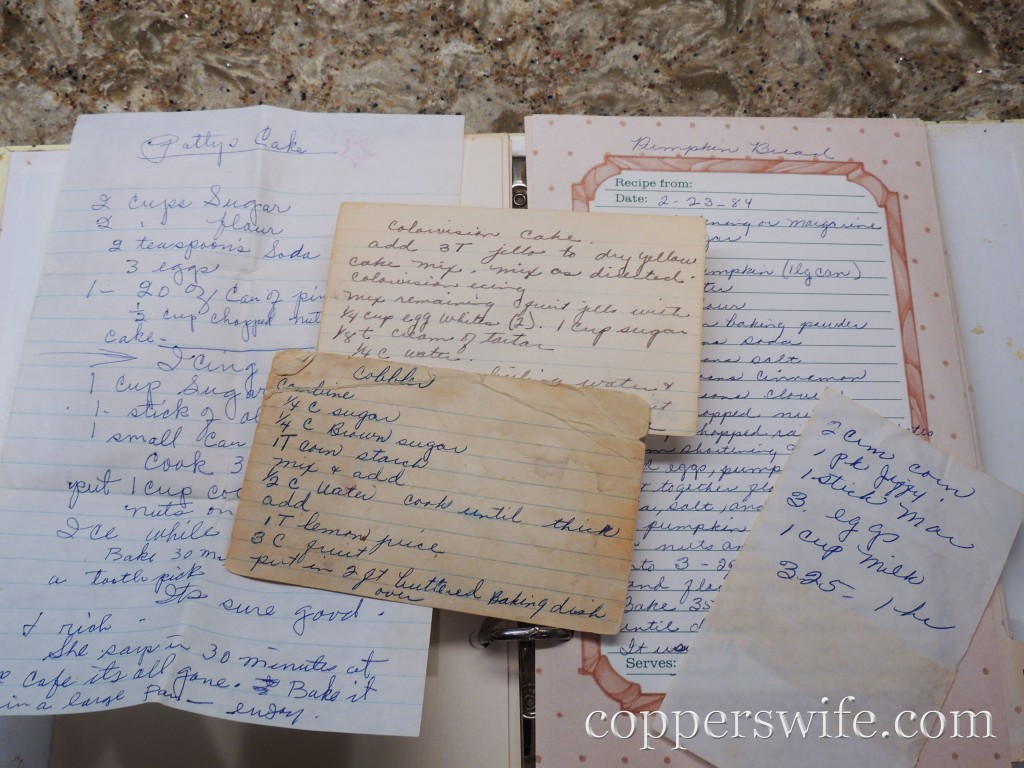 Patty's Cake
2 cups Sugar
2 " flour
2 teaspoon's Soda
3 eggs
1- 20 oz Can of
1/2 cup chopped
cake-
Icing
1 cup Sugar
1- stick of
1 small Can
Cook 3
put 1 cup
nuts on
Ice while
Bake 30
a tooth pick
Its sure good.
& rich -
She says in 30 minutes at
Cafe it's all gone. Bake it
in a large Pan - enjoy.
Colorvision Cake.
add 3T jello to dry yellow
cake mix. mix as directed.
Colorvision icing
mix remaining fruit jello with
1/4 cup egg whites (2). 1 cup sugar
1/8 t cream of tartar
1/4 C water.
boiling water &
Cobbler
Combine
1/4 C sugar
1/4 C Brown sugar
1T corn starch
mix & add
1/2 C water cook until thick
add
1 T lemon juice
3 C fruit
put in 2 qt buttered Baking dish
over
Pumpkin Bread
Recipe from:
Date: 2-23-84
or margarine
pumpkin (1 lg can)
baking powder
soda
salt
cinnamon
chopped
shortening
eggs,
together
salt, and
pumpkin
nuts
3 -
and
Bake
until
It
Serves:
2 can corn
1 pk Jiffy
1 stick Mar
3. eggs
1 cup milk
325- 1 hr
copperswife.com